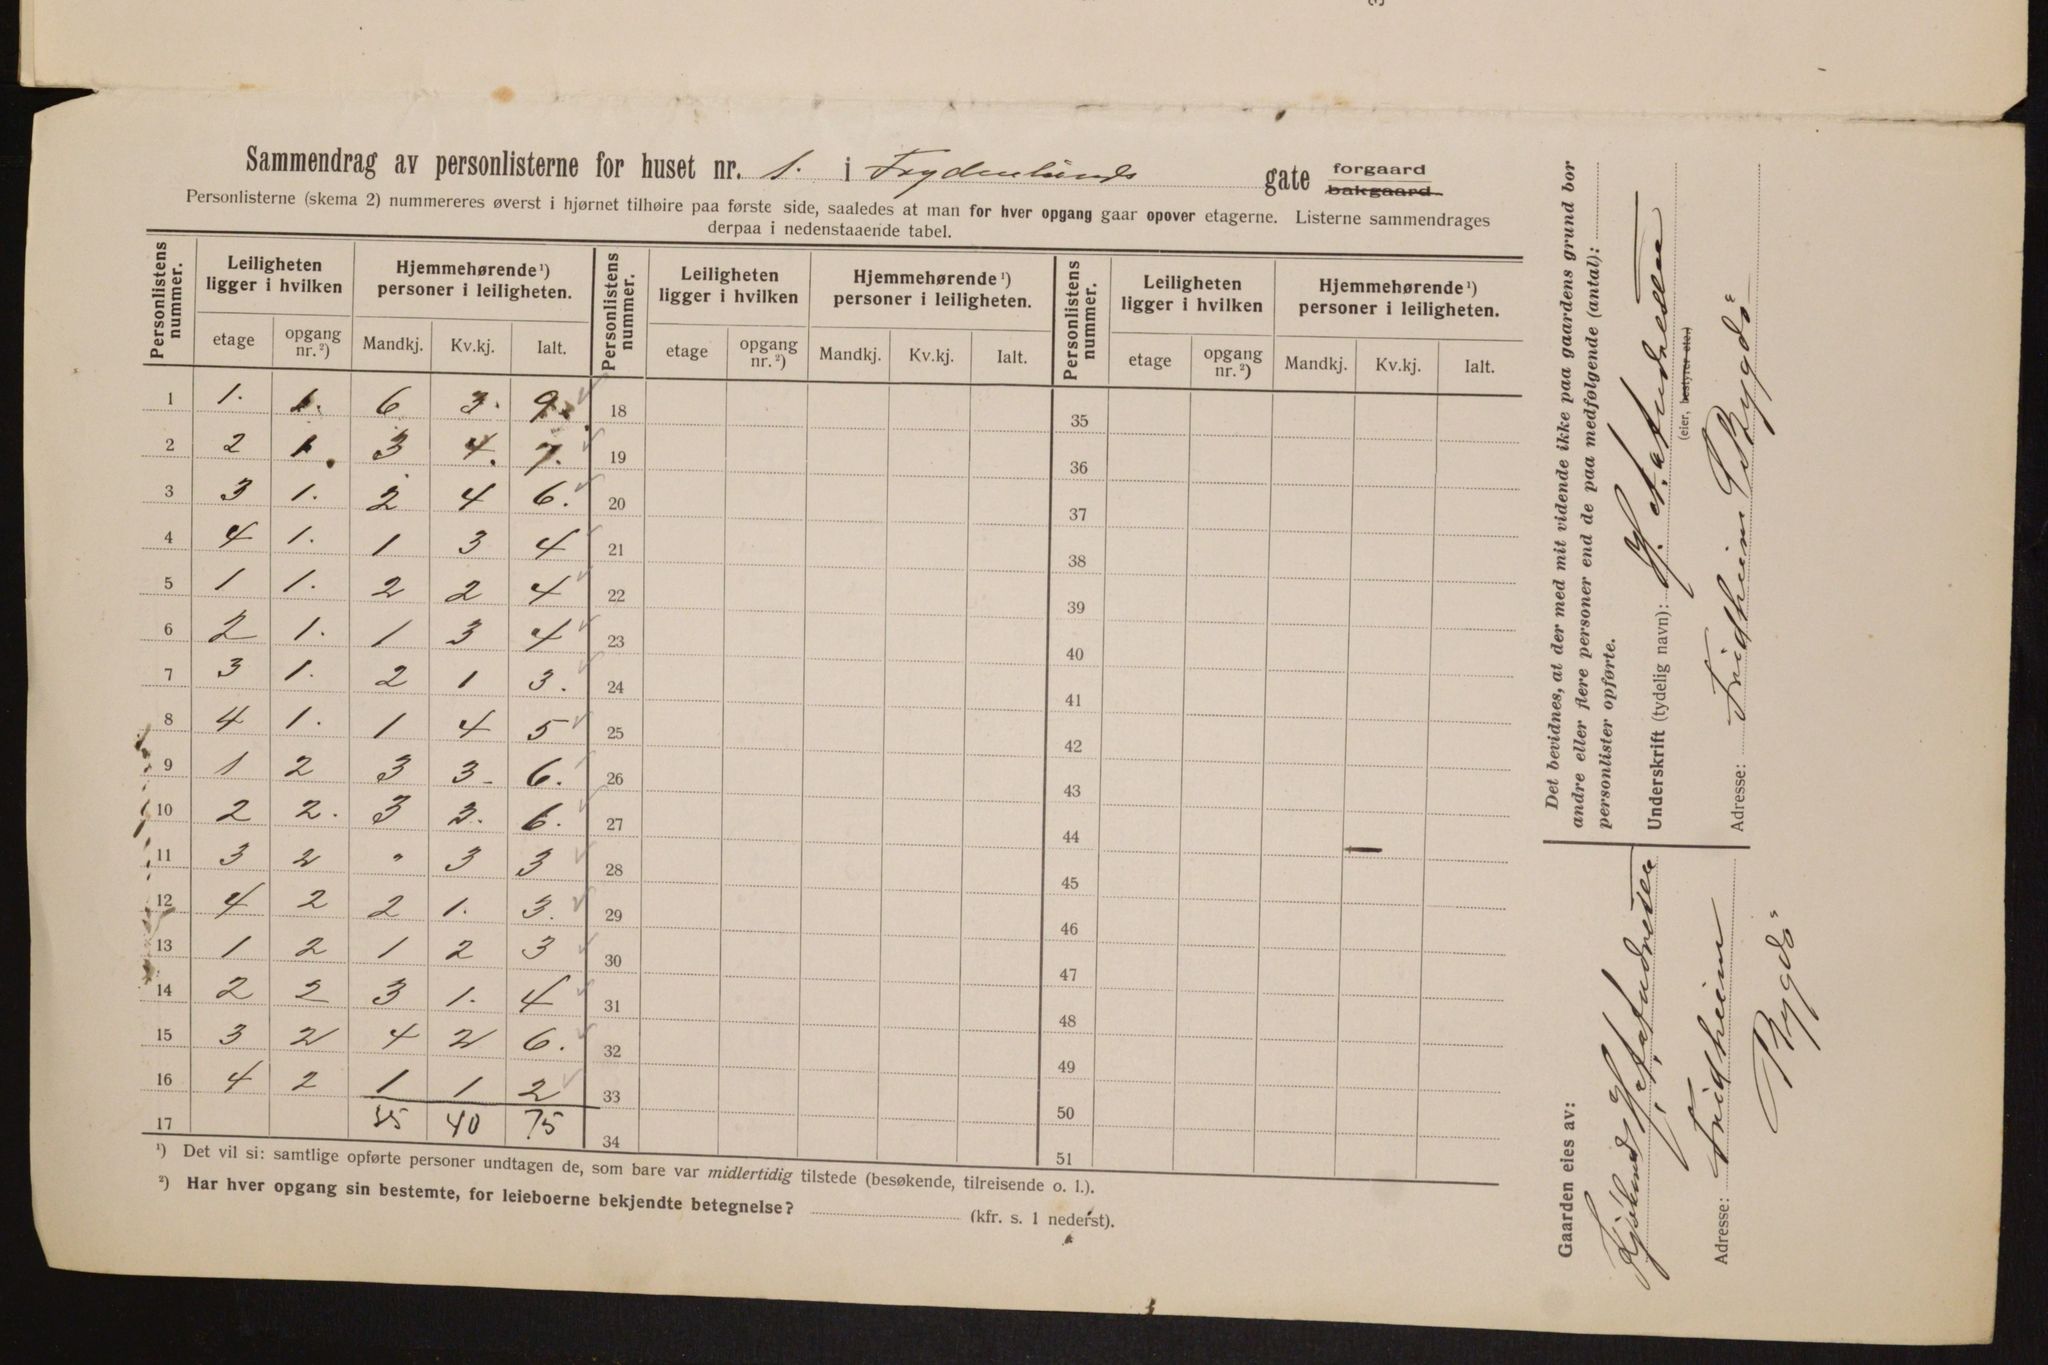 Sammendrag av personlisterne for huset nr. 1. i Frydenlunds gate forgaard bakgaard
Personlisterne (skema 2) nummereres øverst i hjørnet tilhøire paa første side, saaledes at man for hver opgang gaar opover etagerne. Listerne sammendrages
derpaa i nedenstaaende tabel.
Personlistens nummer. Leiligheten ligger i hvilken Hjemmehørende¹) personer i leiligheten. Personlistens nummer. Leiligheten ligger i hvilken Hjemmehørende¹) personer i leiligheten. Personlistens nummer. Leiligheten ligger i hvilken Hjemmehørende¹) personer i leiligheten.
etage opgang nr.²) Mandkj. Kv.kj. Ialt. etage opgang nr.²) Mandkj. Kv.kj. Ialt. etage opgang nr.²) Mandkj. Kv.kj. Ialt.
1 1. 1. 6 3. 9. 18 35
2 2 1. 3 4. 7. 19 36
3 3 1. 2 4 6. 20 37
4 4 1. 1 3 4 21 38
5 1 1. 2 2 4 22 39
6 2 1. 1 3 4 23 40
7 3 1. 2 1 3. 24 41
8 4 1. 1 4 5 25 42
9 1 2 3 3- 6. 26 43
10 2 2. 3 3. 6. 27 44
11 3 2 " 3 3 28 45
12 4 2 2 1. 3. 29 46
13 1 2 1 2 3 30 47
14 2 2 3 1. 4 31 48
15 3 2 4 2 6. 32 49
16 4 2 1 1 2 33 50
17 35 40 75 34 51
¹) Det vil si: samtlige opførte personer undtagen de, som bare var midlertidig tilstede (besøkende, tilreisende o. l.).
²) Har hver opgang sin bestemte, for leieboerne bekjendte betegnelse? (kfr. s. 1 nederst).
Det bevidnes, at der med mit vidende ikke paa gaardens grund bor
andre eller flere personer end de paa medfølgende (antal):
personlister opførte.
Underskrift (tydelig navn): H. A. Andresen
(eier, bestyrer eler.)
Adresse: Fridheim Bygdö
Gaarden eies av:
H. A. Andresen
Adresse: Fridheim
Bygdö